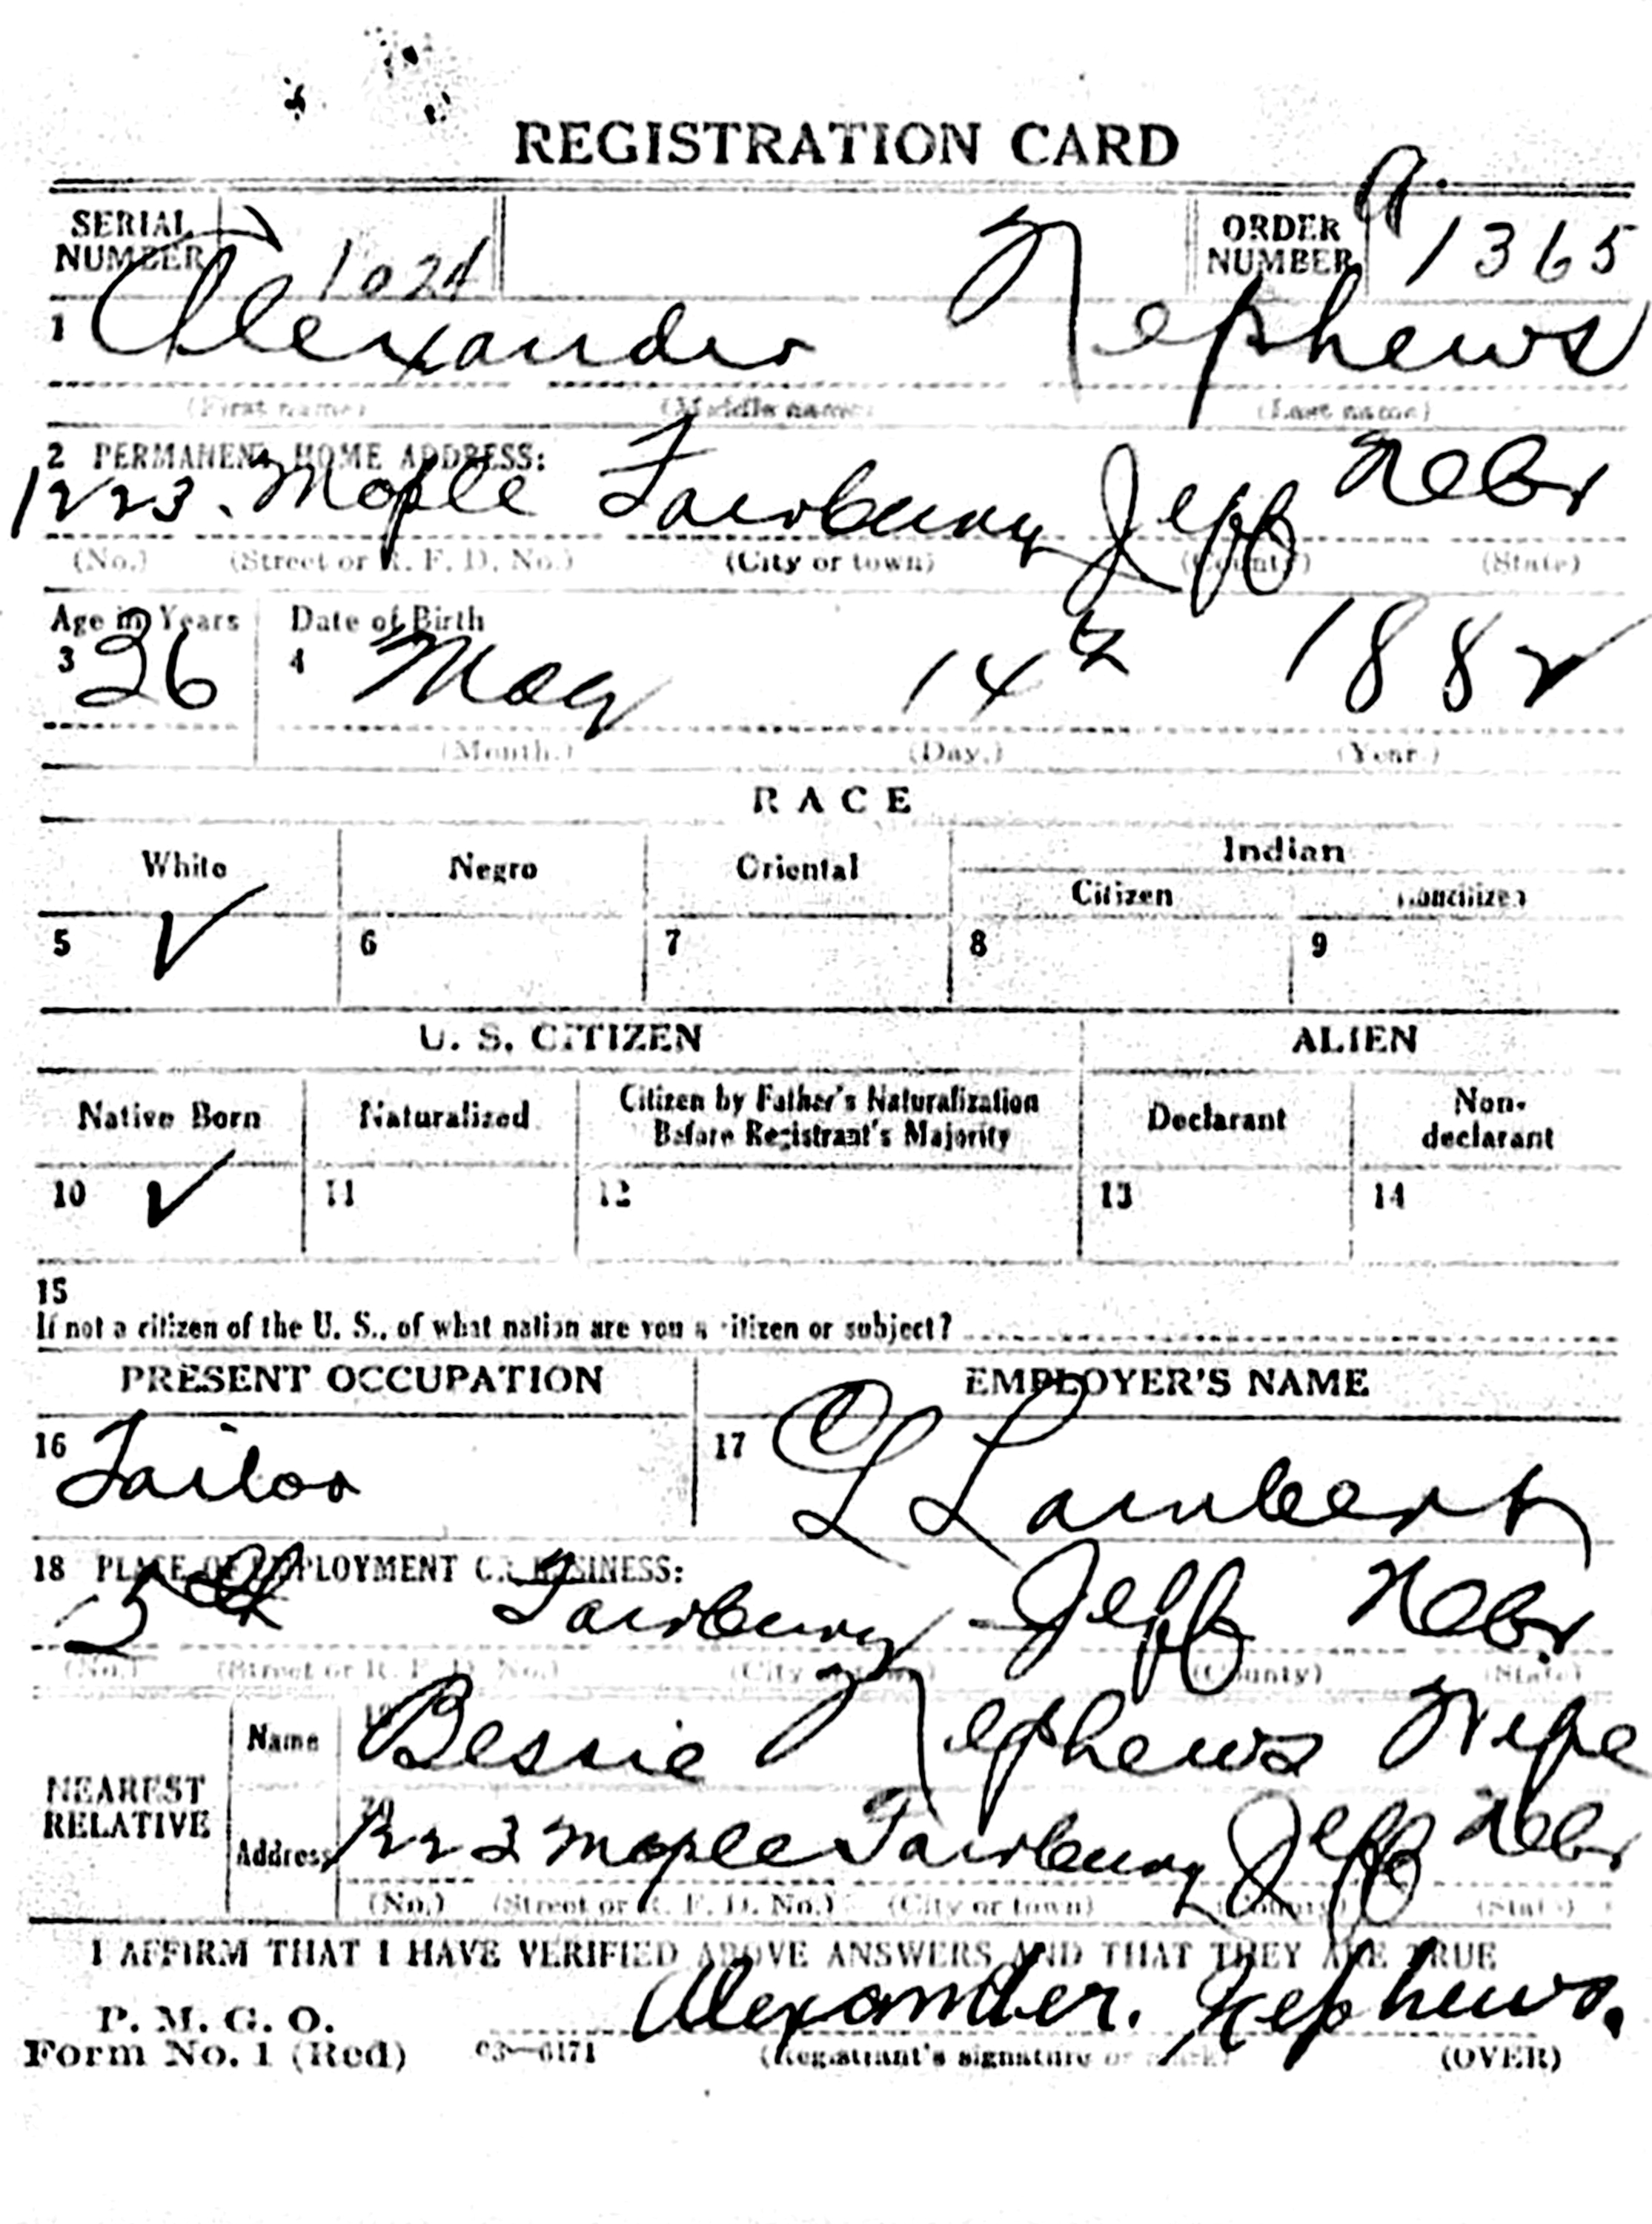 REGISTRATION CARD
SERIAL NUMBER 1024 ORDER NUMBER A. 1365
1 Alexander Nephews
(First name) (Middle name) (Last name)
2 PERMANENT HOME ADDRESS:
1223. Maple Fairbury Jeff Nebr
(No.) (Street or R. F. D. No.) (City or town) (County) (State)
Age in Years Date of Birth
3 36 4 May 14th 1882
(Month.) (Day.) (Year.)
RACE
White Negro Oriental Indian
Citizen Noncitizen
5 ✓ 6 7 8 9
U. S. CITIZEN ALIEN
Native Born Naturalized Citizen by Father's Naturalization Before Registrant's Majority Declarant Non-declarant
10 ✓ 11 12 13 14
15
If not a citizen of the U. S., of what nation are you a citizen or subject?
PRESENT OCCUPATION EMPLOYER'S NAME
16 Tailor 17 C L Lambert
18 PLACE OF EMPLOYMENT OR BUSINESS:
5th Fairbury Jeff Nebr
(No.) (Street or R. F. D. No.) (City or town) (County) (State)
NEAREST RELATIVE
Name 19 Bessie Nephews Wife
Address 20 1223 Maple Fairbury Jeff Nebr
(No.) (Street or R. F. D. No.) (City or town) (County) (State)
I AFFIRM THAT I HAVE VERIFIED ABOVE ANSWERS AND THAT THEY ARE TRUE
P. M. G. O.
Form No. 1 (Red) 03—6171 Alexander. Nephews.
(Registrant's signature or mark) (OVER)